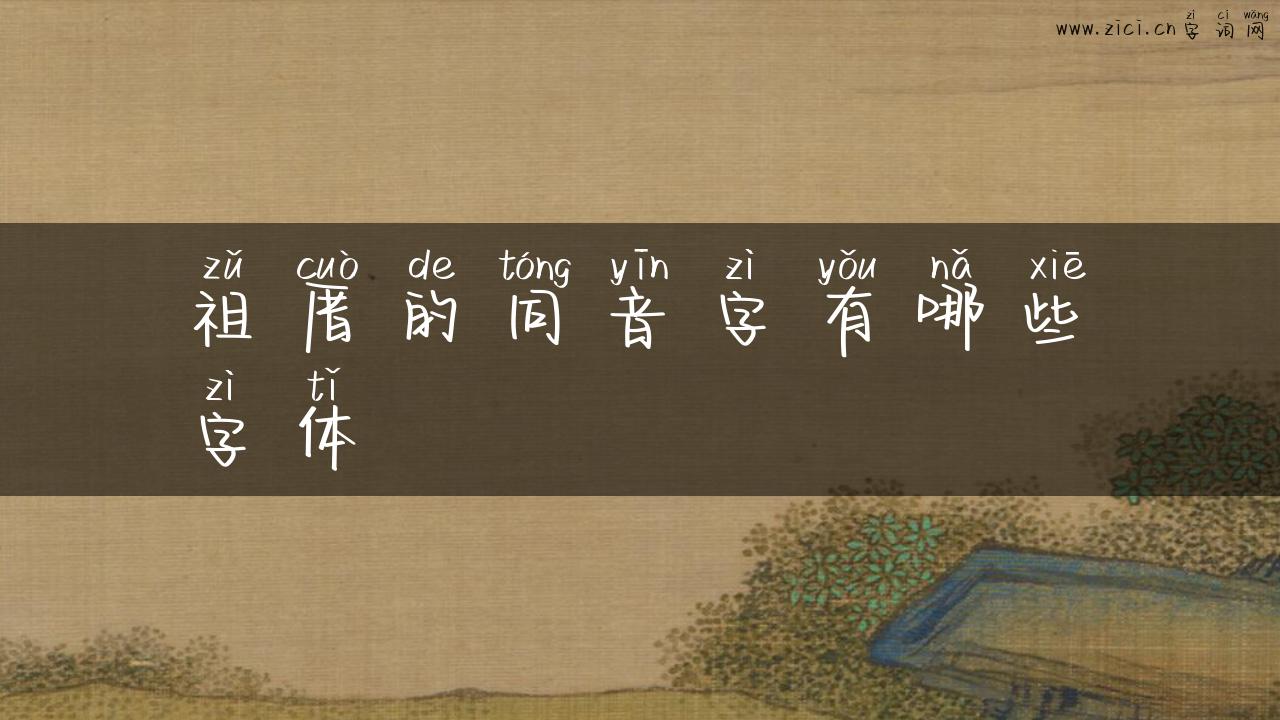 zì cí wǎng
www.zici.cn 字 词 网
zǔ cuò de tóng yīn zì yǒu nǎ xiē
祖 厝 的 同 音 字 有 哪 些
zì tǐ
字 体